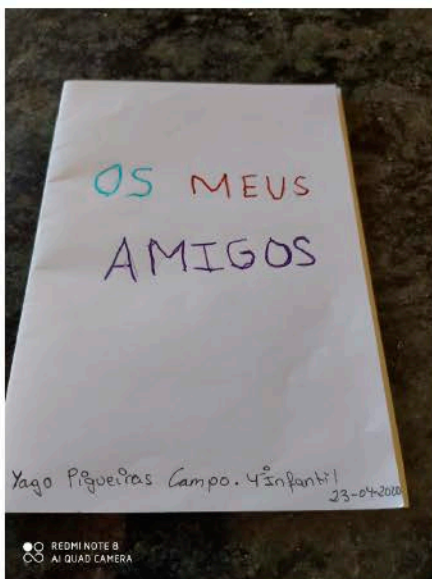 OS MEUS
AMIGOS
Yago Pigueiras Campo. 4º Infantil
23-04-2020
REDMI NOTE 8
AI QUAD CAMERA